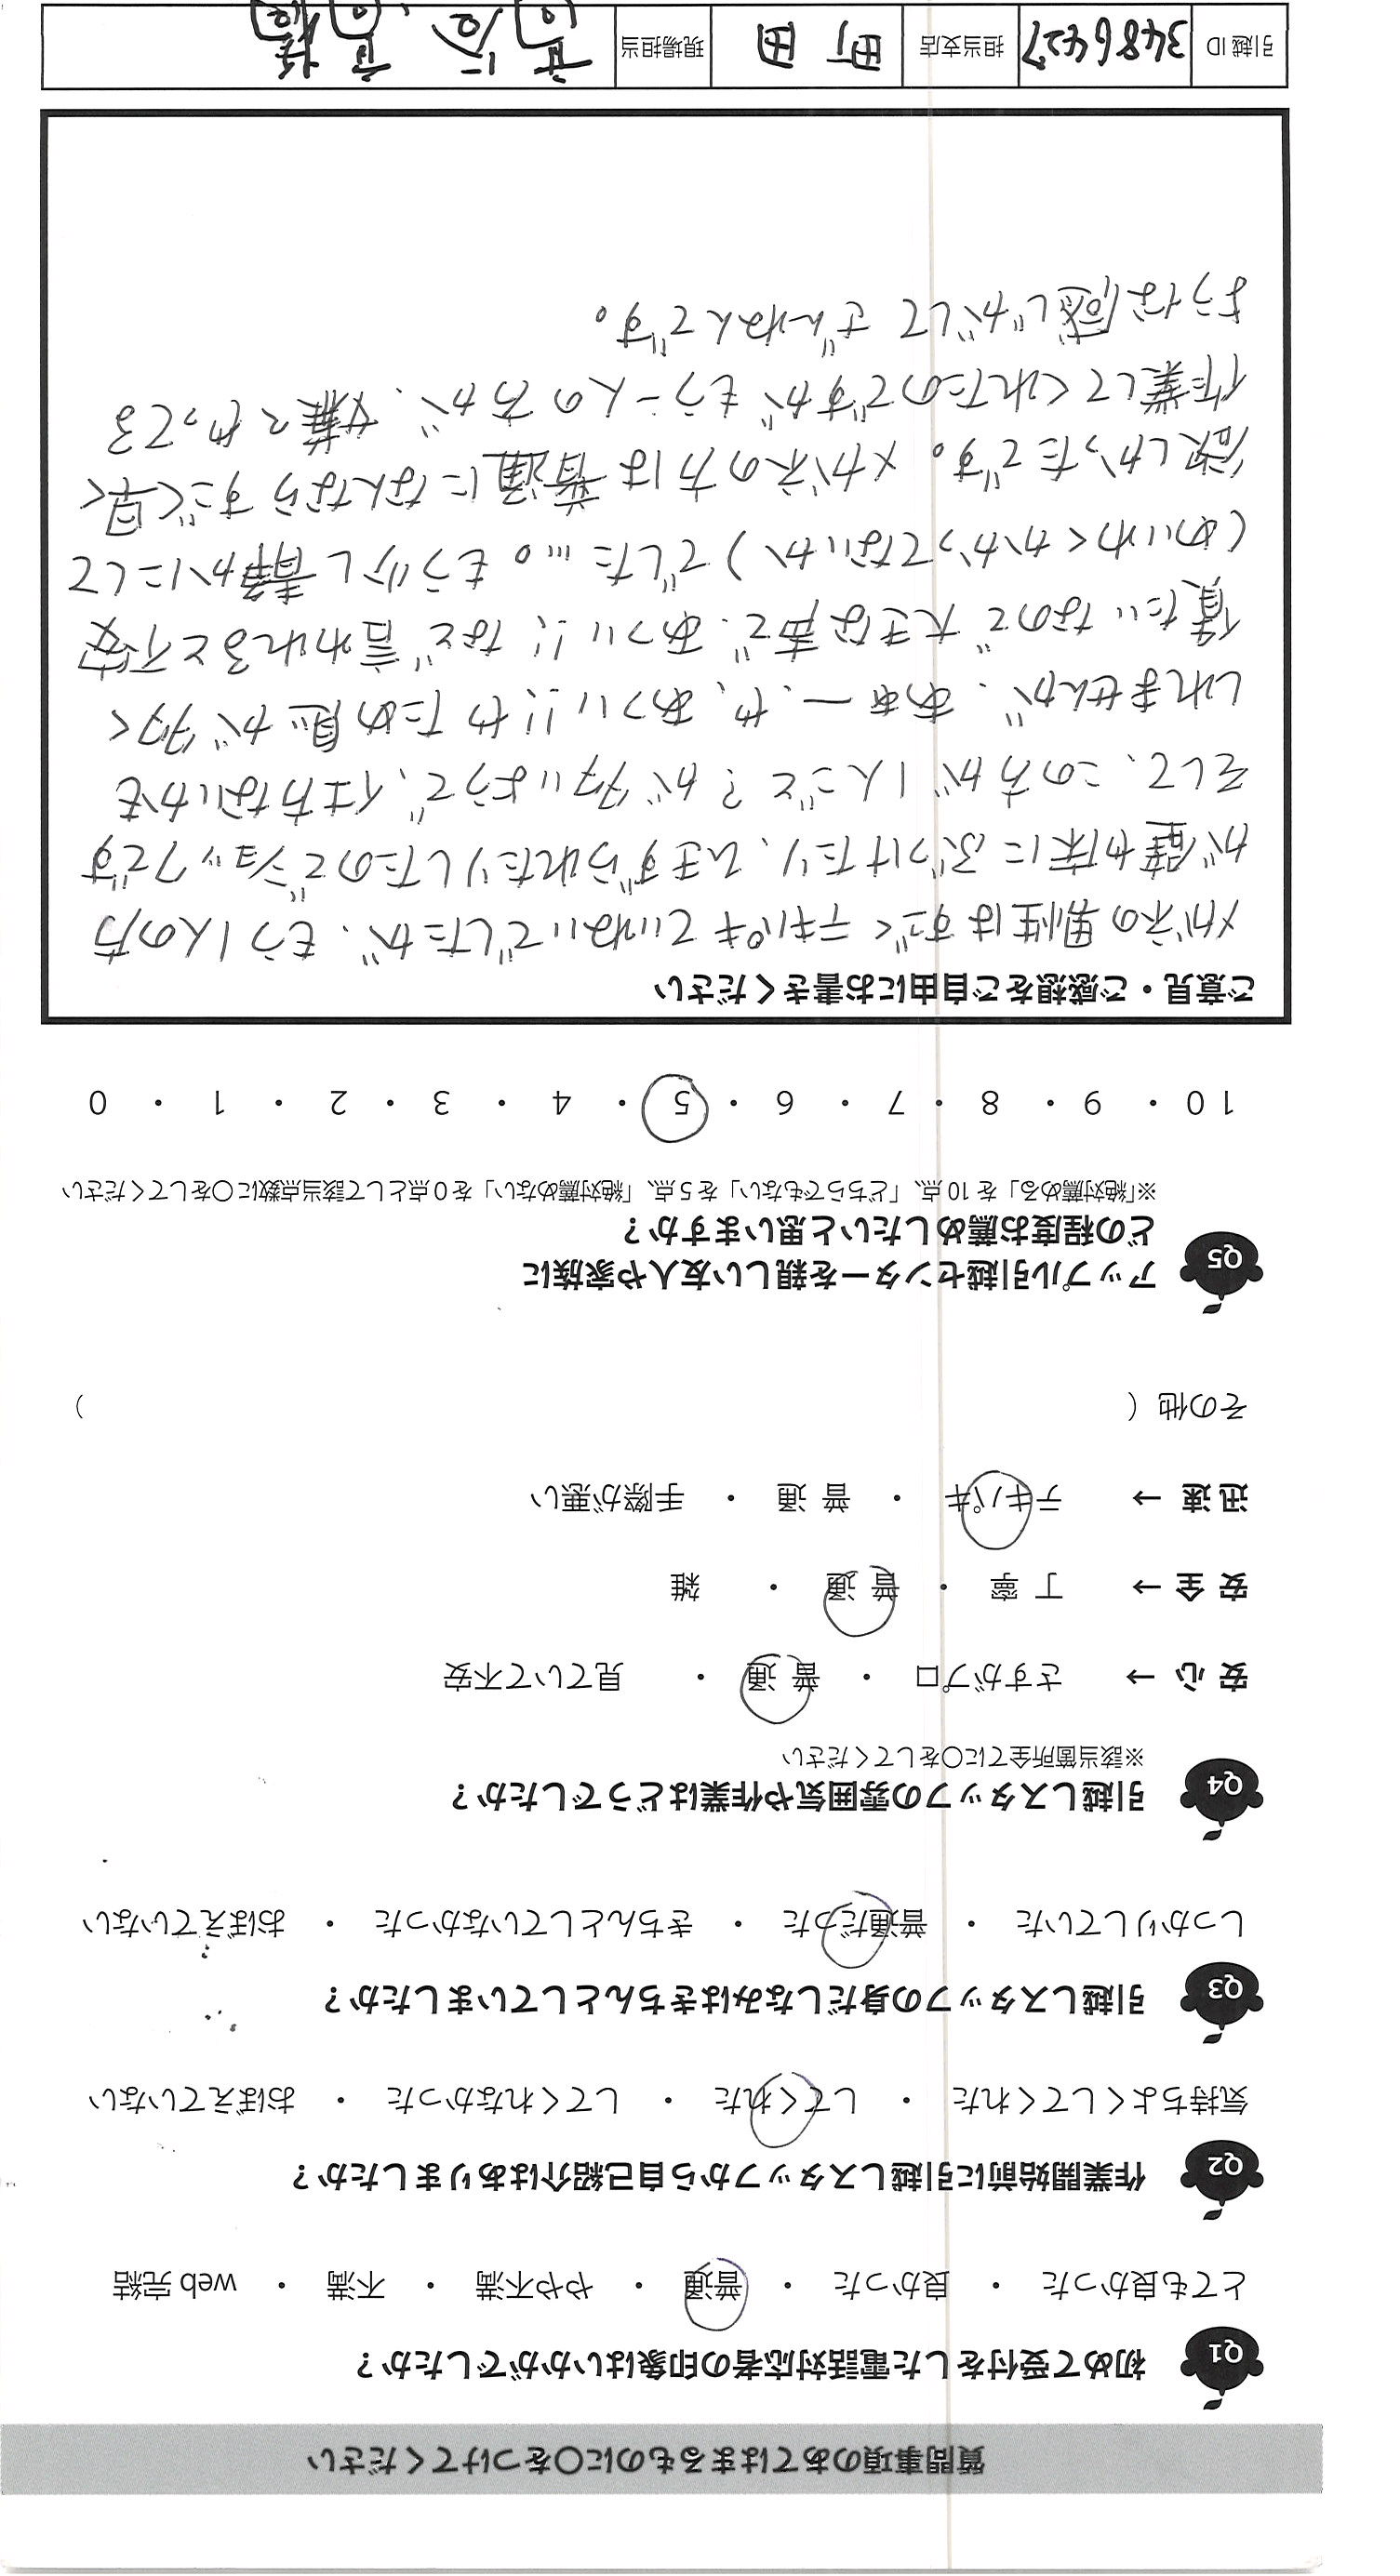 質問事項のあてはまるものに○をつけてください
Q1 初めて受付をした電話対応者の印象はいかがでしたか？
とても良かった ・ 良かった ・ 普通 ・ やや不満 ・ 不満 ・ web 完結
Q2 作業開始前に引越しスタッフから自己紹介はありましたか？
気持ちよくしてくれた ・ してくれた ・ してくれなかった ・ おぼえていない
Q3 引越しスタッフの身だしなみはきちんとしていましたか？
しっかりしていた ・ 普通だった ・ きちんとしていなかった ・ おぼえていない
Q4 引越しスタッフの雰囲気や作業はどうでしたか？
※該当箇所全てに○をしてください
安 心 → さすがプロ ・ 普 通 ・ 見ていて不安
安 全 → 丁 寧 ・ 普 通 ・ 雑
迅 速 → テキパキ ・ 普 通 ・ 手際が悪い
その他（ ）
Q5 アップル引越センターを親しい友人や家族に
どの程度お薦めしたいと思いますか？
※「絶対薦める」を 10 点、「どちらでもない」を 5 点、「絶対薦めない」を 0 点として該当点数に○をしてください
10 ・ 9 ・ 8 ・ 7 ・ 6 ・ 5 ・ 4 ・ 3 ・ 2 ・ 1 ・ 0
ご意見・ご感想をご自由にお書きください
メガネの男性はすごくテキパキていねいでしたが、もう1人の方
が壁や床にぶつけたり、ひきずられたりしたのでショックです
そして、この方が1人ごと？が多いようで、仕方ないかも
しれませんが、あぁー、や、あつい!!やため息が多く
賃たいなので大きな声で、あつい!!など言われると不安
(めいわくかかってないか)でした…。もう少し静かにして
欲しかったです。メガネの方は普通になんならすごく早く
作業してくれたのですがもう一人の方が、嫌々やってる
ような感じがしてざんねんです。
引越 ID 3486427 担当支店 町田 現場担当